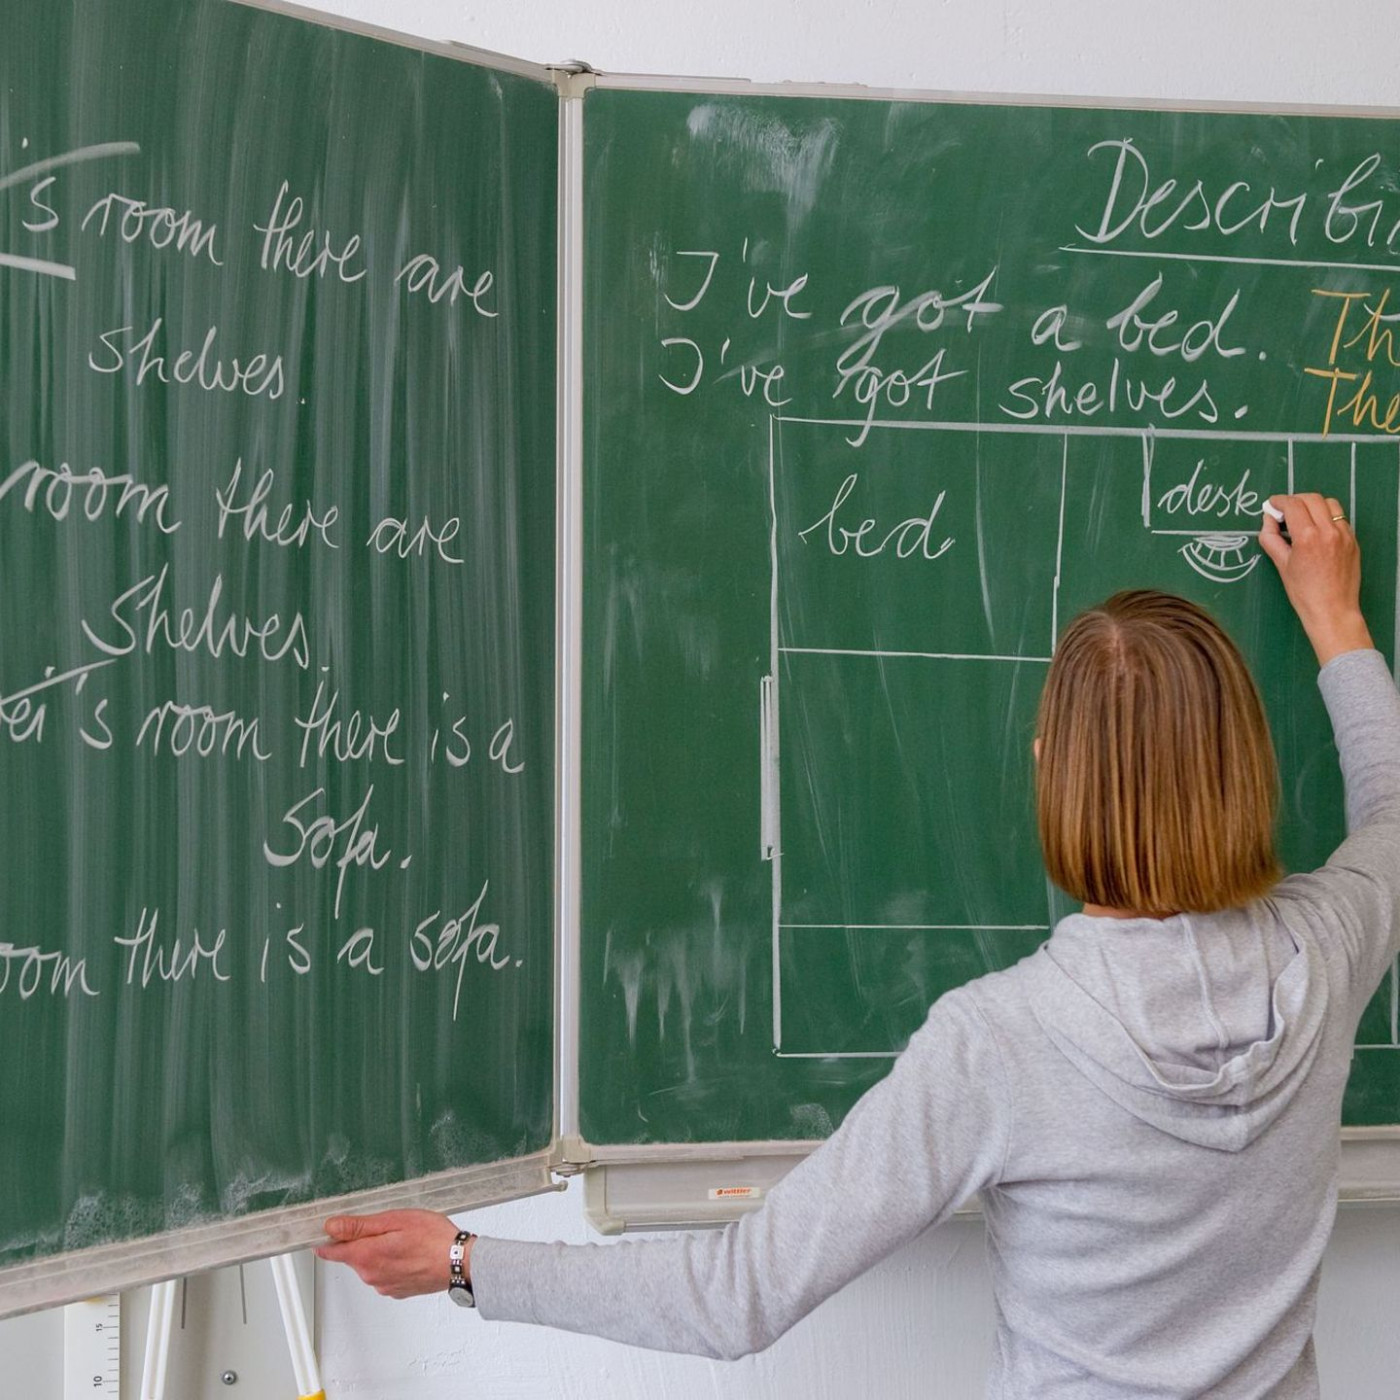 's room there are
shelves.
room there are
shelves.
's room there is a
sofa.
there is a sofa.
I've got a bed.
I've got shelves.
bed
desk
wittler
15
10